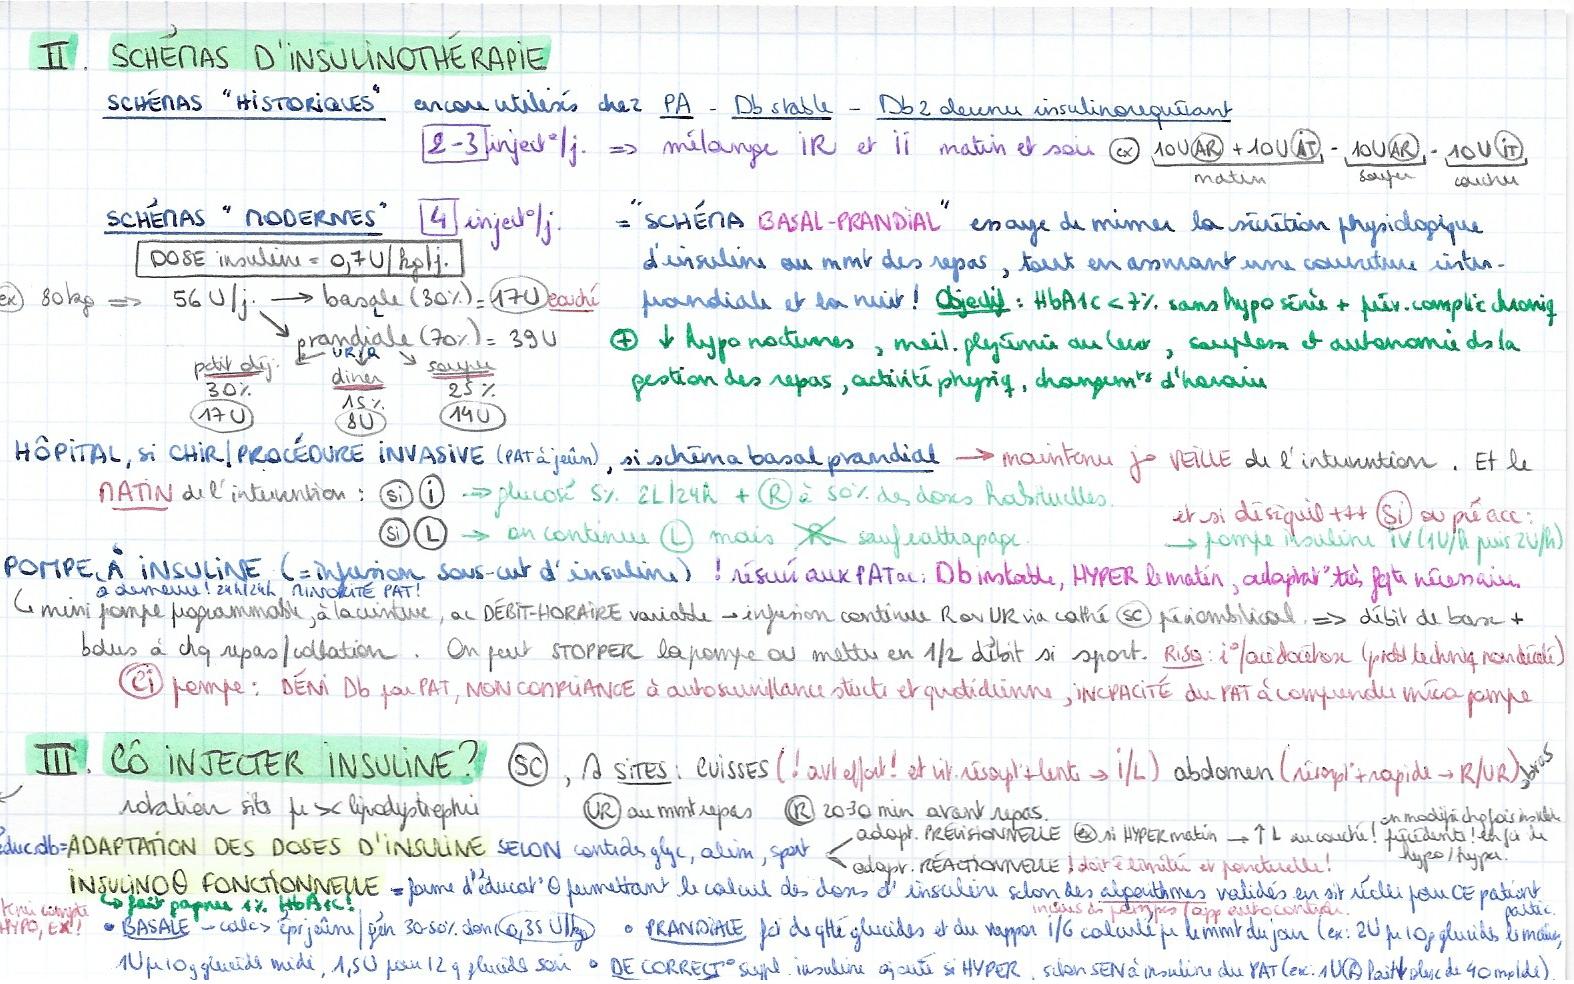 II. SCHÉMAS D'INSULINOTHÉRAPIE
SCHÉMAS "HISTORIQUES" encore utilisés chez PA - Db stable - Db2 devenu insulinorequérant
2-3 inject°/j. => mélange iR et iI matin et soir ex 10U AR + 10U AI - 10U AR - 10U IT
matin souper coucher
SCHÉMAS "MODERNES" 4 inject°/j. = "SCHÉMA BASAL-PRANDIAL" essaye de mimer la sécrétion physiologique
DOSE insuline = 0,7U/kg/j. d'insuline au mmt des repas, tout en assurant une couverture inter-
ex 80kg => 56 U/j. → basale (30%) = 17U couché prandiale et la nuit ! Objectif : HbA1c < 7% sans hypo sévère + prév. complic chroniq
prandiale (70%) = 39U + ↓ hypo nocturnes, meil. glycémie au lever, souplesse et autonomie ds la
UR/R
petit déj. diner souper gestion des repas, activité physiq, changemts d'horaire
30% 15% 25%
17U 8U 14U
HÔPITAL, si CHIR/PROCÉDURE INVASIVE (PAT à jeûn), si schéma basal prandial → maintenu j VEILLE de l'intervention. Et le
MATIN de l'intervention : si i → glucosé 5% 2L/24h + R à 50% des doses habituelles.
et si déséquil +++ si ou pré acc :
si L → on continue L mais R sauf rattrapage. → pompe insuline IV (1U/h puis 2U/h)
POMPE À INSULINE (= infusion sous-cut d'insuline) ! réservé aux PAT ac : Db instable, HYPER le matin, adaptat° très fqte nécessaire.
à demeure ! 24h/24h MINORITÉ PAT !
↳ mini pompe programmable, à la ceinture, ac DÉBIT-HORAIRE variable → infusion continue R ou UR via cathé SC périombilical => débit de base +
bolus à chq repas/collation. On peut STOPPER la pompe ou mettre en 1/2 débit si sport. RISQ : i°/acidocétose (prob techniq non détecté)
Ci pompe : DÉNI Db par PAT, NON COMPLIANCE à autosurveillance stricte et quotidienne, INCPACITÉ du PAT à comprendre méca pompe
III. CÔ INJECTER INSULINE? SC, SITES : CUISSES (! avt effort ! et vit. résorpt + lente → i/L) abdomen (résorpt + rapide → R/UR), bras
rotation sites lipodystrophie UR au mmt repas R 20-30 min avant repas.
éduc. db = ADAPTATION DES DOSES D'INSULINE SELON contrôles glyc, alim, sport
adapt. PRÉVISIONNELLE ex si HYPER matin → ↑ L au couché !
on modifie
hypo/hyper.
adapt. RÉACTIONNELLE ! doit ê limitée et ponctuelle !
INSULINOθ FONCTIONNELLE = forme d'éducat° θ permettant le calcul des doses d'insuline selon des algorithmes validés en sit réelles pour CE patient
↳ fait gagner 1% HbA1c !
tenir compte HYPO, EX !
• BASALE - calc > épr jeûne/gén 30-50% donc 0,35 U/kg • PRANDIALE fct de qtté glucides et du rapport i/G calculé pr le mmt du jour (ex: 2U pr 10g glucides le matin,
1U pr 10g glucide midi, 1,5U pour 12g glucide soir • DE CORRECT° suppl. insuline ajouté si HYPER, selon SEN à insuline du PAT